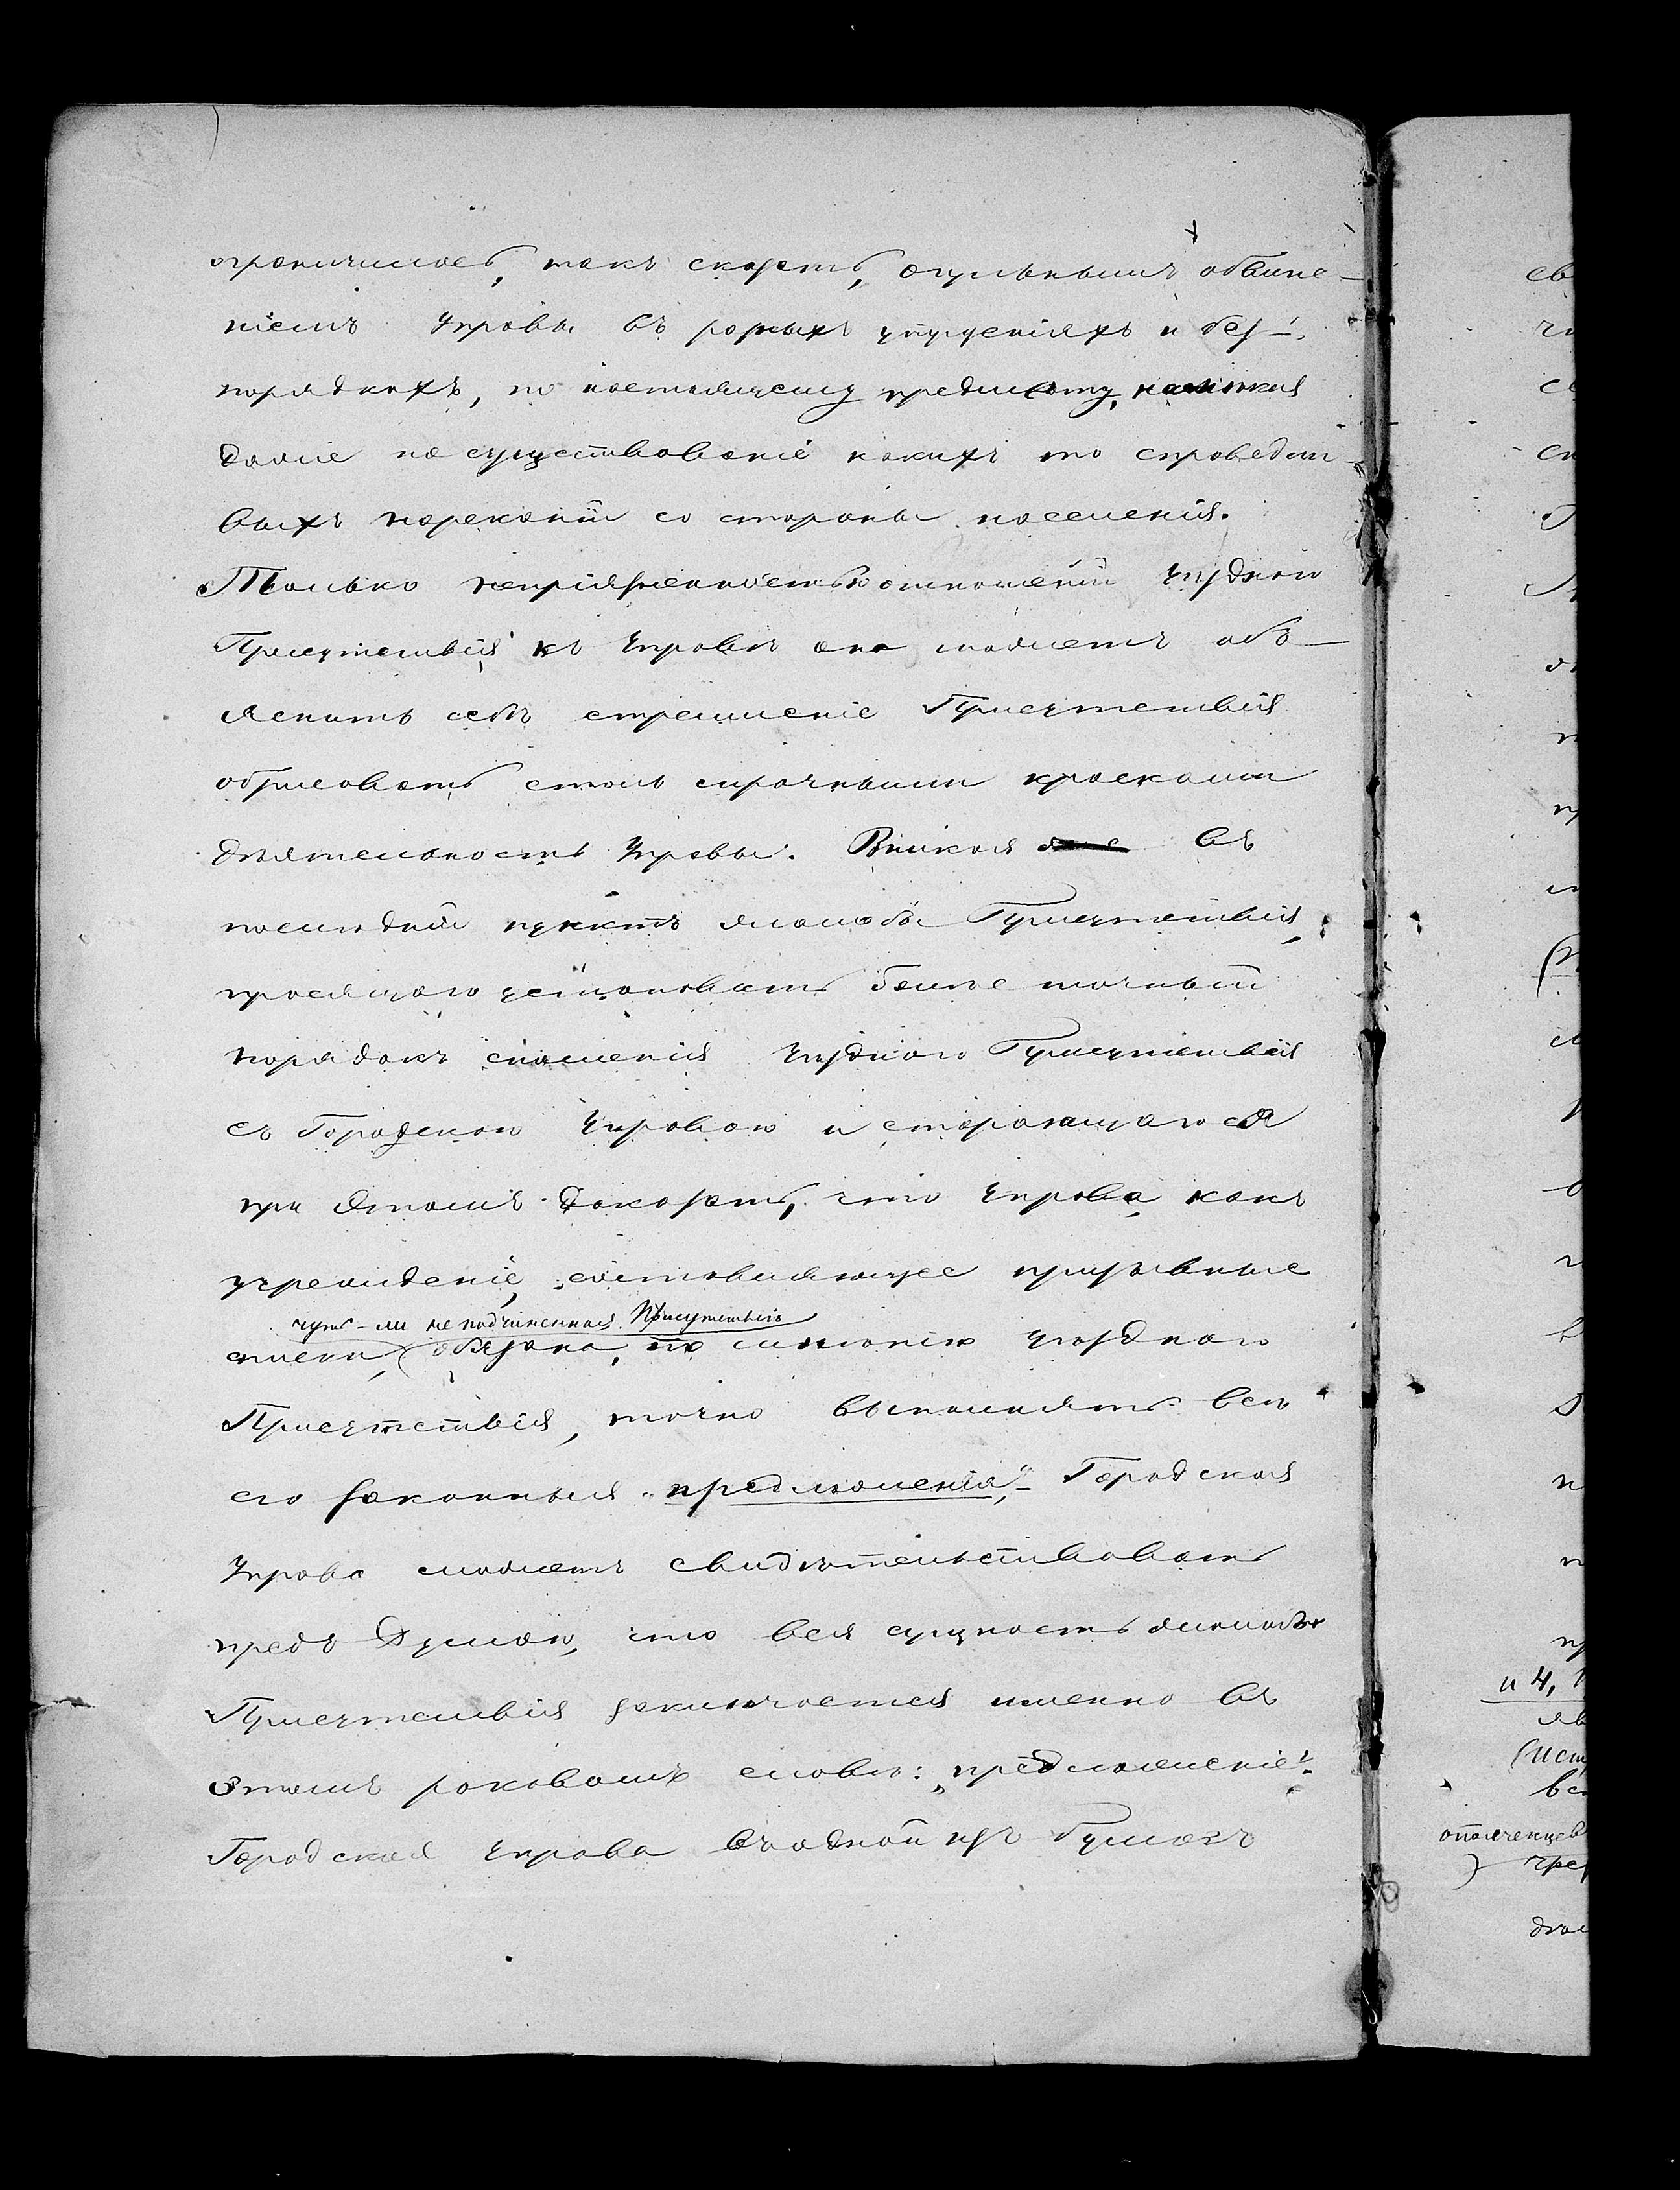 ограничилось, такъ сказать, огульнымъ обвине-
ніемъ Управы въ разныхъ упущеніяхъ и без-
порядкахъ, по настоящему предмету, намекая
даже на существованіе какихъ то справедли-
выхъ нареканій со стороны населенія.
Только непріязненностью отношеній Уѣзднаго
Присутствія къ Управѣ она можетъ объ-
яснить себѣ стремленіе Присутствія
обрисовать столь мрачными красками
дѣятельность Управы. Вникая въ
послѣдній пунктъ жалобы Присутствія,
просящаго установить болѣе точный
порядокъ сношенія Уѣзднаго Присутствія
съ Городскою Управою и старающагося
при этомъ доказать, что Управа какъ
учрежденіе, составляющее призывные
чуть-ли не подчиненная Присутствію
списки, обязана, по мнѣнію Уѣзднаго
Присутствія, точно выполнять всѣ
его законныя „предложенія",- Городская
Управа можетъ свидѣтельствовать
предъ Думою, что вся сущность жалобы
Присутствія заключается именно въ
этомъ роковомъ словѣ: „предложеніе".
Городская Управа въ одной изъ бумагъ
ев
и 4,
яв
(Ист
вс
ополченцев
чрез